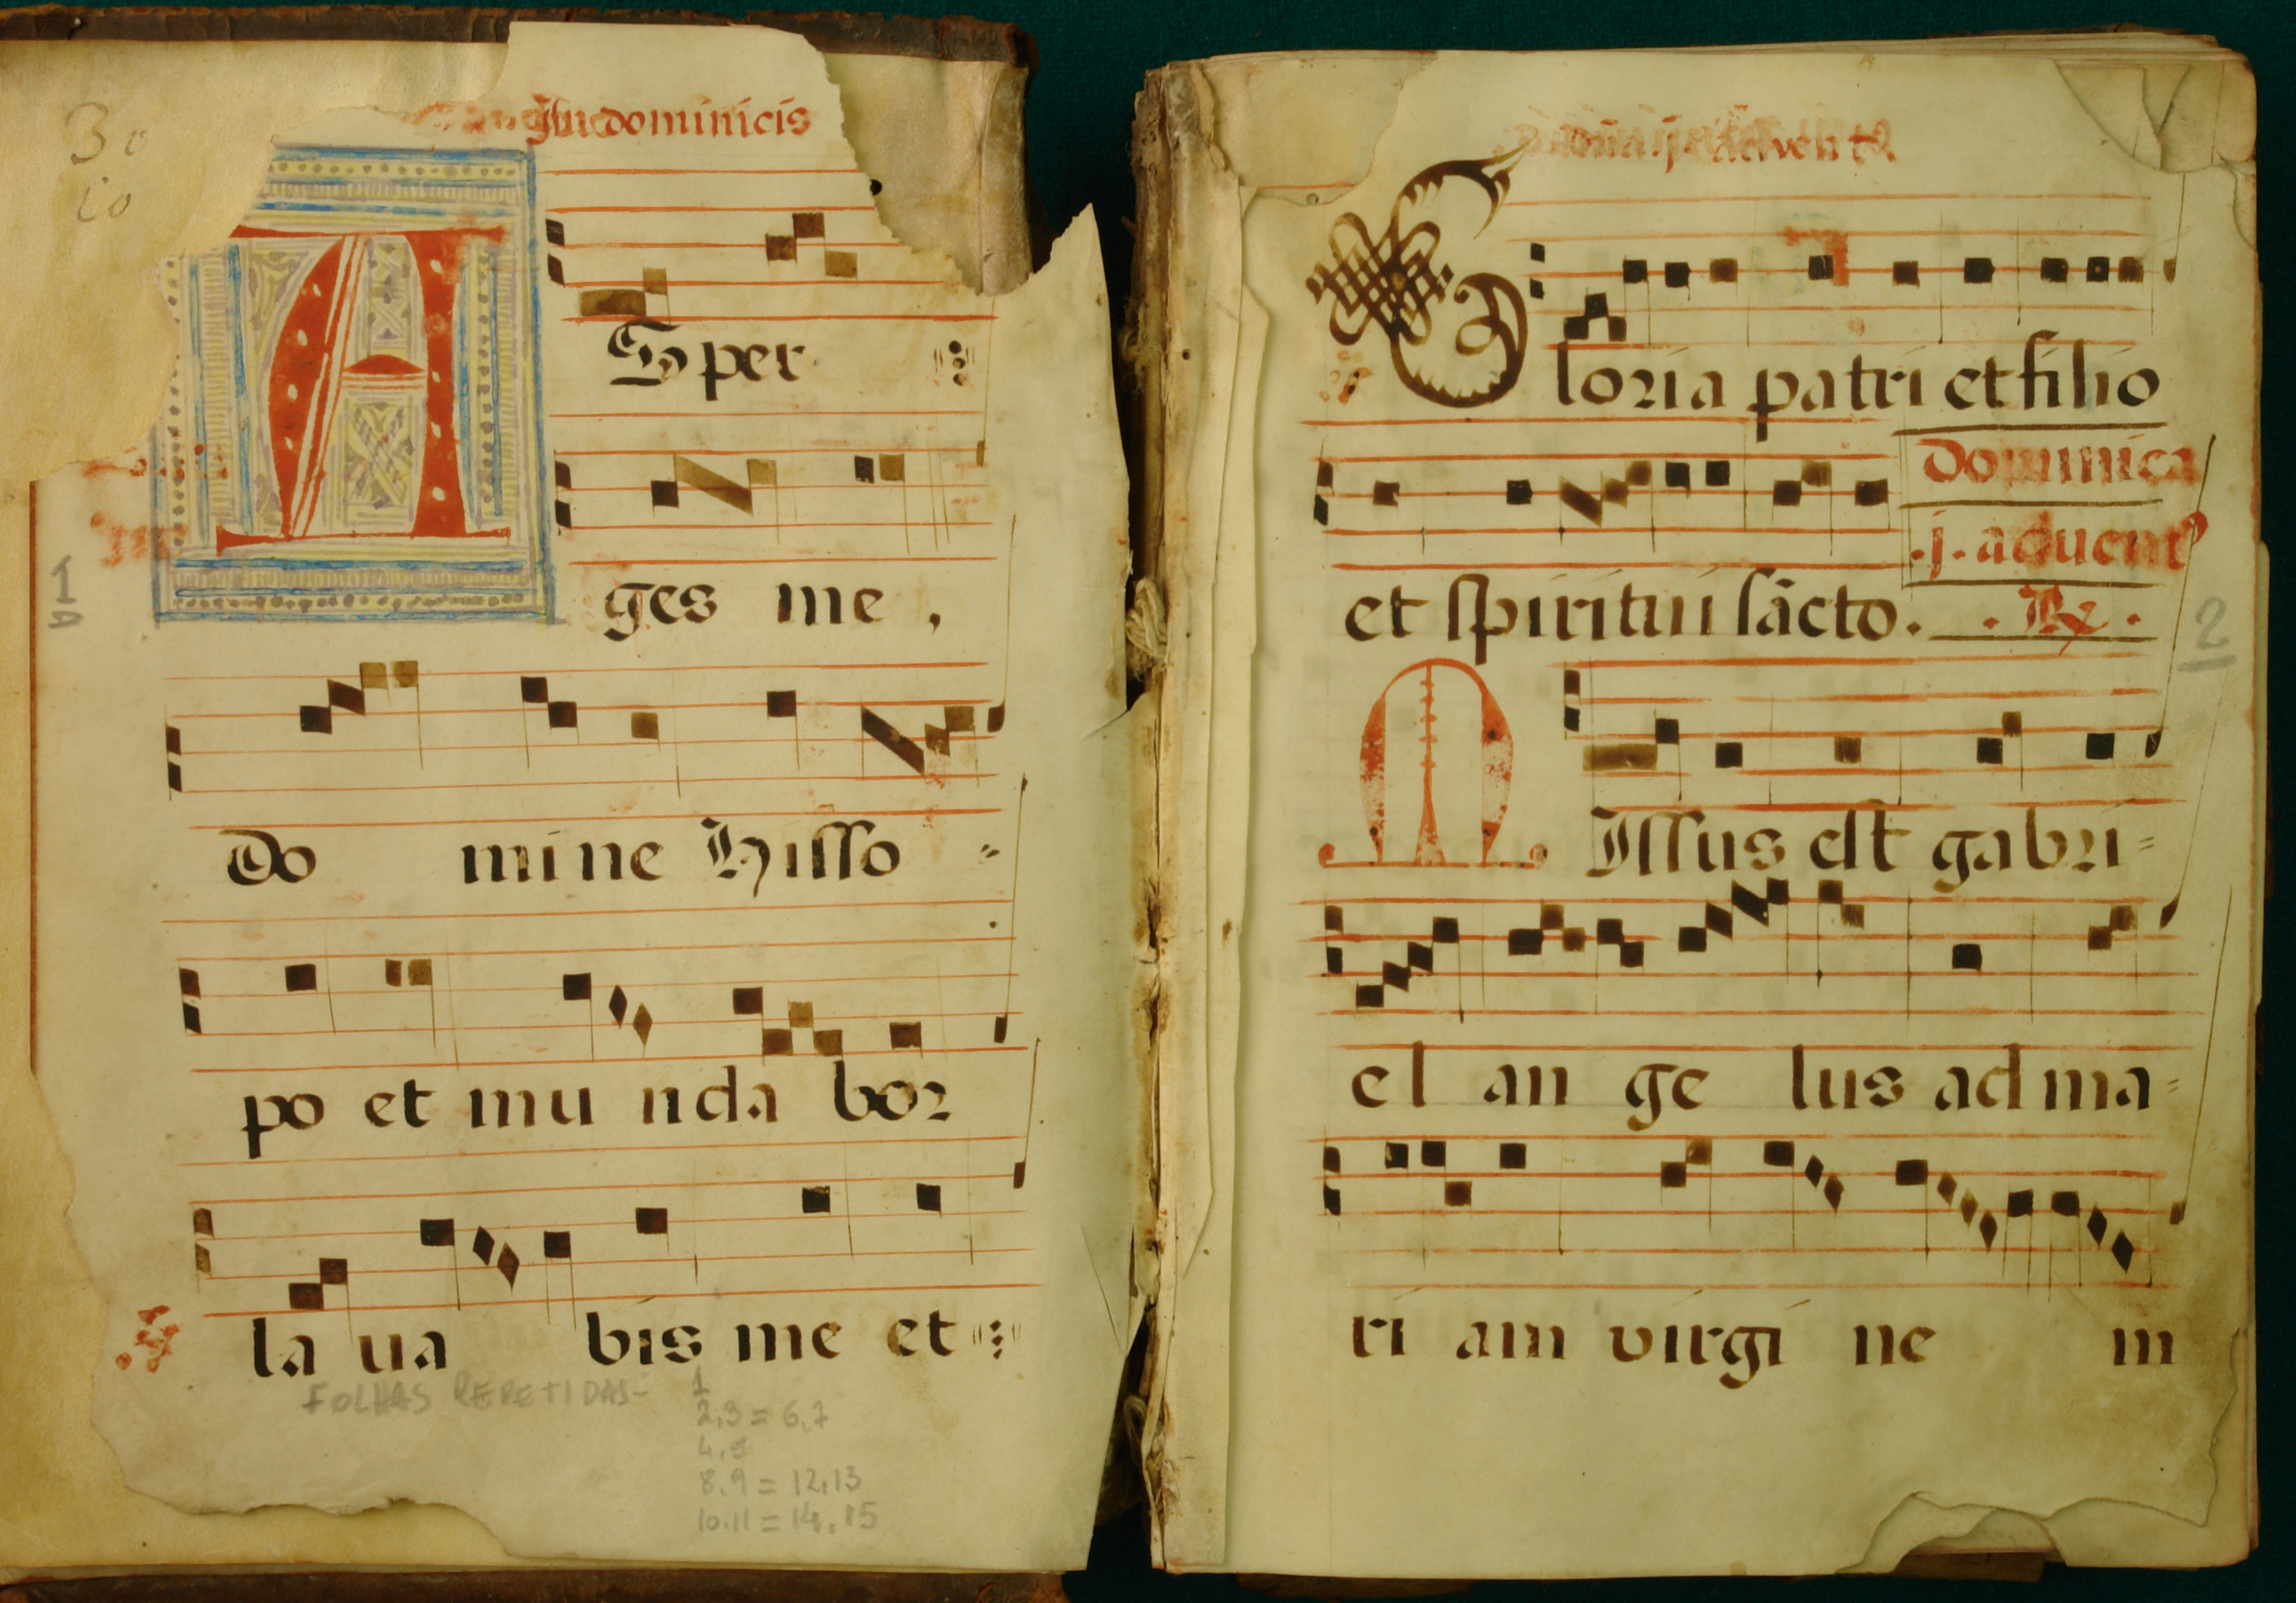 30
10
In dominicis
A
Sper
ges me,
1
Do mine Hisso -
po et mu nda bor
la ua bis me et
FOLHAS REPETIDAS- 1
2,3 = 6,7
4,5
8,9 = 12,13
10.11 = 14,15
Gloria patri et filio
dominica
.j. aduent
et spiritui sācto. . R .
2
M
Issus est gabri-
el an ge lus ad ma-
ri am virgi ne m